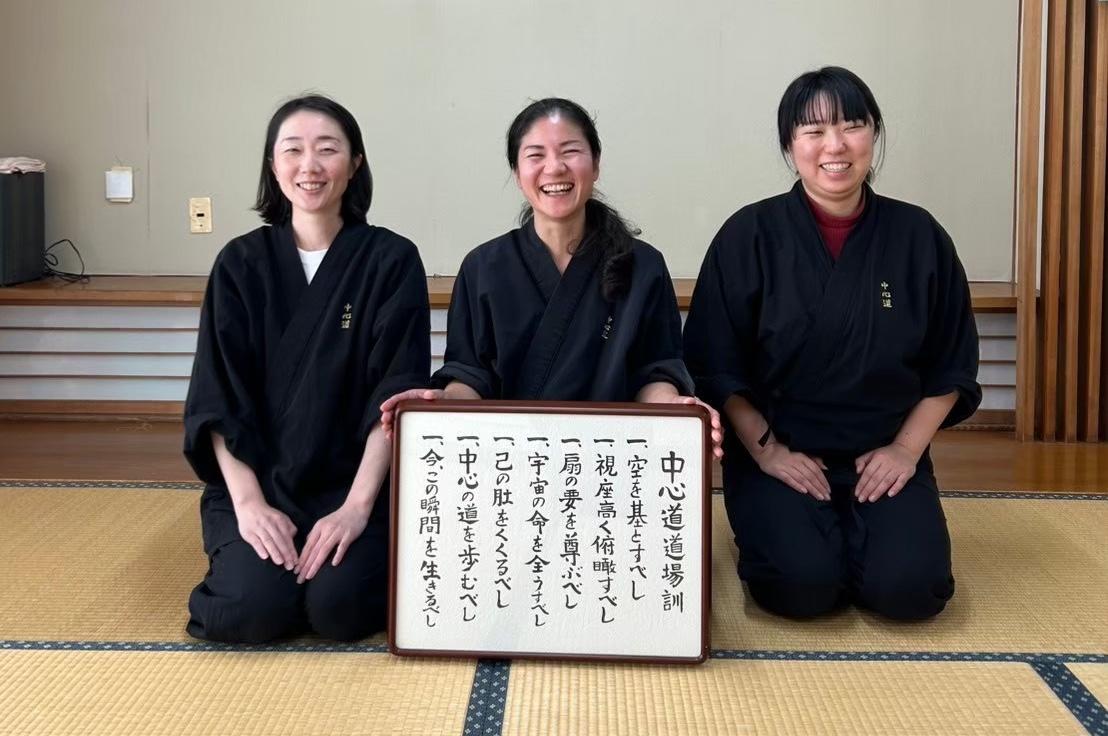 中心道道場訓
一、空を基とすべし
一、視座高く俯瞰すべし
一、扇の要を尊ぶべし
一、宇宙の命を全うすべし
一、己の肚をくくるべし
一、中心の道を歩むべし
一、今、この瞬間を生きるべし
中心道
中心道